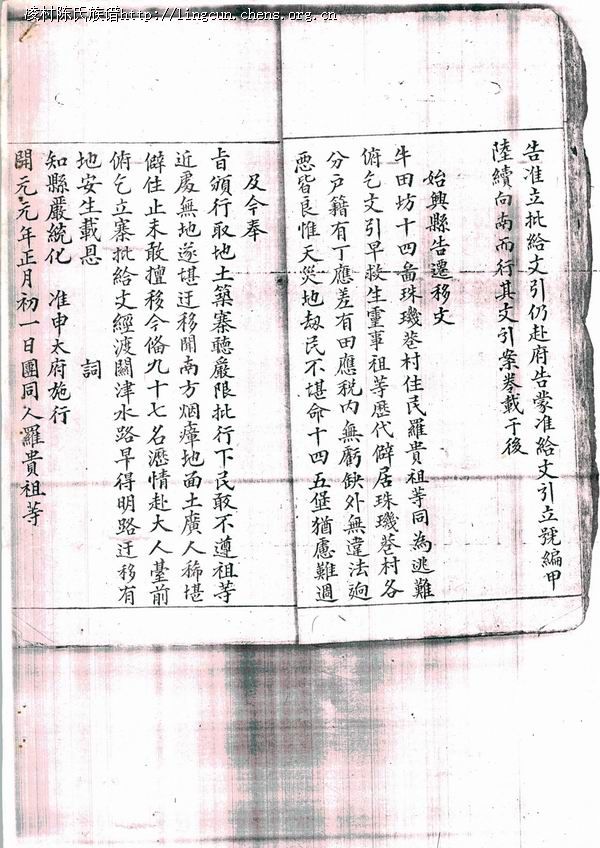 凌村陈氏族谱http://lingcun.chens.org.cn
告准立批給文引仍赴府告蒙准給文引立號編甲
陸續向南而行其文引案叅載于後
始興縣告遷移文
牛田坊十四啚珠璣巷村住民羅貴祖等同為逃難
俯乞文引早救生靈事祖等歷代僻居珠璣巷村各
分戶籍有丁應差有田應税內無虧缺外無違法廹
惡皆良惟天災地刼民不堪命十四五堡猶慮難過
及今奉
旨頒行取地土築寨聽嚴限批行下民敢不遵祖等
近處無地遂堪迁移聞南方烟瘴地面土廣人稀堪
僻住止未敢擅移今俻九十七名瀝情赴大人臺前
俯乞立寨批給文經渡關津水路早得明路迁移有
地安生載恩 詞
知縣嚴統化 准申太府施行
開元元年正月初一日團同人羅貴祖等